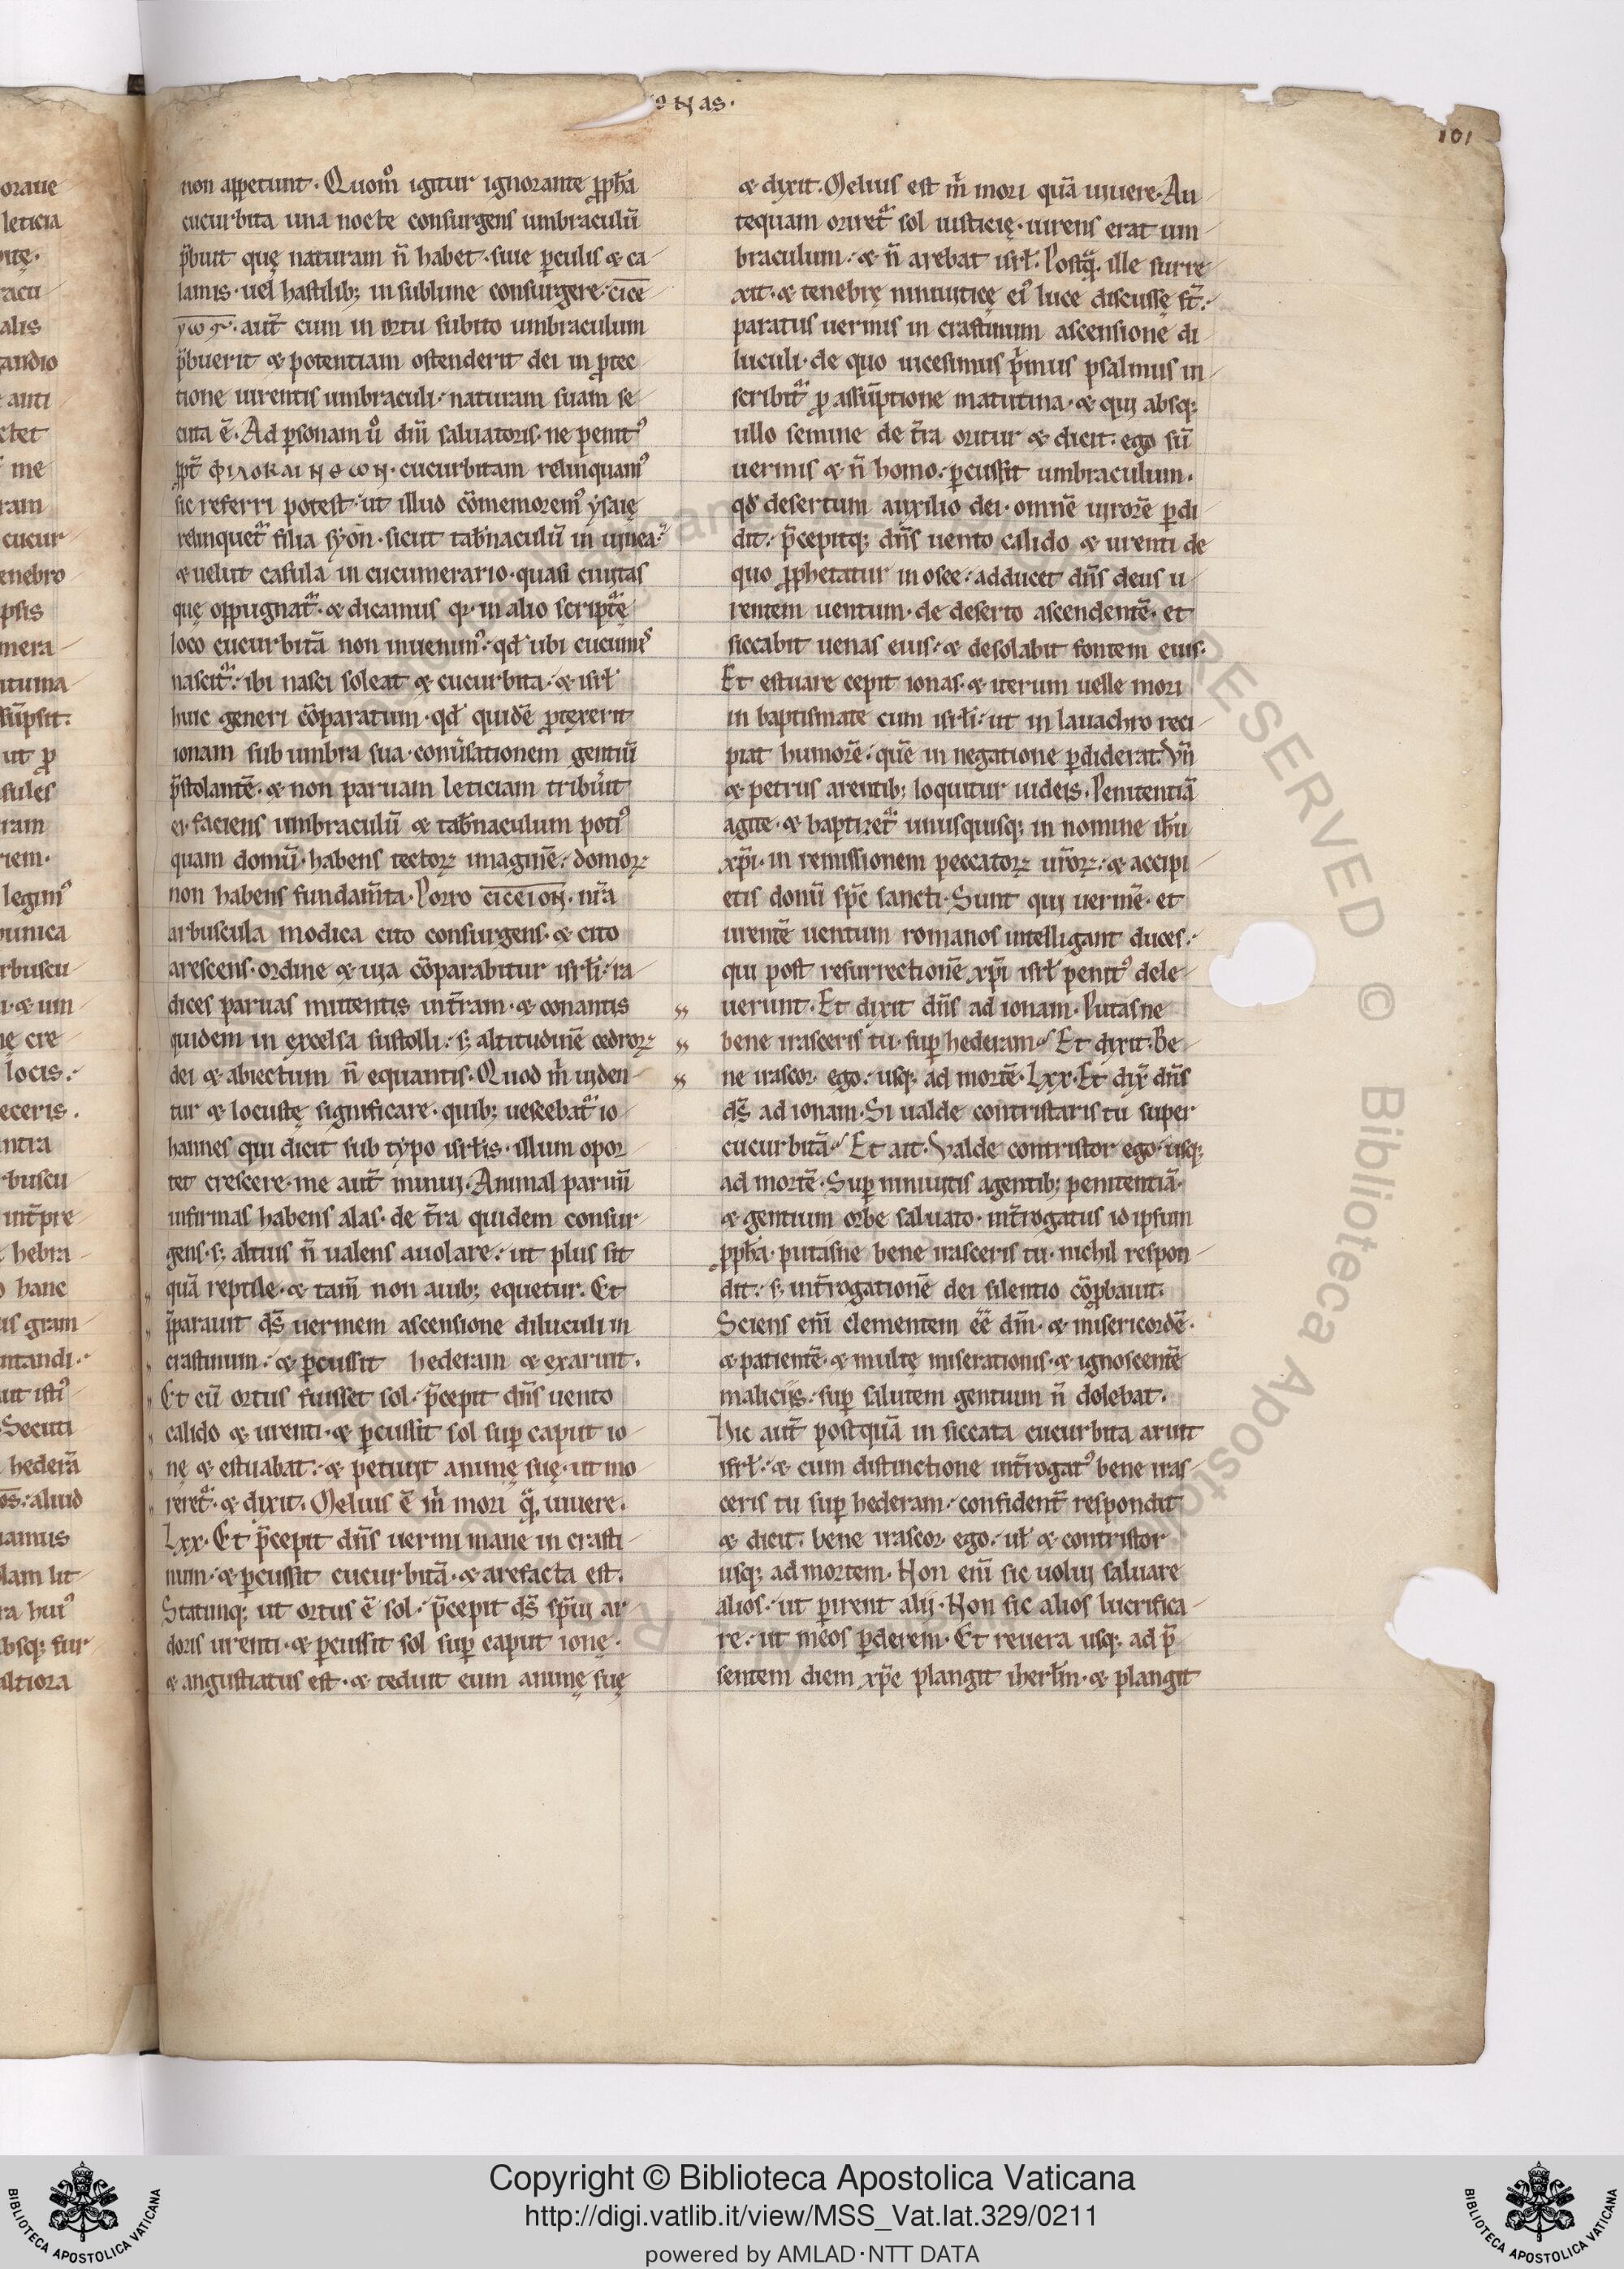 ıonas.
101
non appetunt. Quom̊ igitur ignorante ꝓpħa
cucurbita una nocte consurgens umbraculũ
p̃buit quę naturam ñ habet. siue ꝑculis & ca
lamis. uel hastilib; in sublime consurgere. cice
yωɴ. aut̃ cum in ortu subito umbraculum
p̃buerit & potentiam ostenderit dei in ꝓtec
tione uirentis umbraculi. naturam suam se
cuta ẽ. Ad ꝑsonam ů dñi saluatoris. ne penit᾽
ꝓpt̃ φιλοκαιηθωη. cucurbitam relinquam᾽
sic referri potest. ut illud cõmemorem᾽ ysaię
relinquet᷑ filia syon. sicut tab̃naculũ in uinea.
& uelut casula in cucumerario. quasi ciuitas
quę oppugnat᷑. & dicamus q̃. in alio scriptę
loco cucurbitã non inuenim᾽. qđ ubi cucumis
nascit᷑. ibi nasci soleat & cucurbita. & isrł
huic generi cõparatum. qđ quidẽ ꝓtexerit
ionam sub umbra sua. conũsationem gentiũ
p̃stolantẽ. & non paruam leticiam tribuit
ei. faciens umbraculũ & tab̃naculum poti᾽
quam domũ. habens tectoꝝ imaginẽ. domoꝝ
non habens fundam̃ta. Porro ciceion. nr̃a
arbuscula modica cito consurgens. & cito
arescens. ordine & uita cõparabitur isrłi. ra
dices paruas mittentis in t̃ram. & conantis
quidem in excelsa sustolli. s; altitudinẽ cedroꝝ
dei & abiectum ñ equantis. Quod m̃ uiden
tur & locustę significare. quib; uescebat᷑ io
hannes qui dicit sub typo isrłis. illum opor
tet crescere. me aut̃ minui. Animal paruũ
infirmas habens alas. de t̃ra quidem consur
gens. s; altius ñ ualens auolare. ut plus sit
quã reptile. & tam̃ non auib; equetur. Et
p̃parauit dś uermem ascensione diluculi in
crastinum. & ꝑcussit hederam & exaruit.
Et cũ ortus fuisset sol. p̃cepit dñs uento
calido & urenti. & ꝑcussit sol suꝑ caput io
nę & estuabat. & petiuit animę suę. ut mo
reret᷑. & dixit. Melius ẽ m̃ mori q̃. uiuere.
Lxx. Et p̃cepit dñs uermi mane in crasti
num. & ꝑcussit cucurbitã. & arefacta est.
Statimq; ut ortus ẽ sol. p̃cepit dś spũi ar
doris urenti. & ꝑcussit sol suꝑ caput ionę.
& angustiatus est. & teduit eum animę suę
& dixit. Melius est m̃ mori quã uiuere. An
tequam oriret᷑ sol iusticię. uirens erat um
braculum. & ñ arebat isrł. Postq̃. ille surre
xit. & tenebrę niniuiticę ei᾽ luce discussę st̃.
paratus uermis in crastinum ascensione di
luculi. de quo uicesimus p̃mus psalmus in
scribit᷑ ꝓ assũptione matutina. & qui absq;
ullo semine de t̃ra oritur & dicit. ego sũ
uermis & ñ homo. ꝑcussit umbraculum.
qđ desertum auxilio dei. omnẽ uirorẽ ꝑdi
dit. p̃cepitq; dñs uento calido & urenti de
quo ꝓphetatur in osee. adducet dñs deus u
rentem uentum. de deserto ascendentẽ. et
siccabit uenas eius. & desolabit fontem eius.
Et estuare cepit ionas. & iterum uelle mori
in baptismate cum isrłi. ut in lauachro reci
piat humorẽ. quẽ in negatione ꝑdiderat. Vñ
& petrus arentib; loquitur iudeis. Penitentiã
agite. & baptizet᷑ unusquisq; in nomine ihũ
xp̃i. in remissionem peccatoꝝ ur̃oꝝ. & accipi
etis donũ sp̃c sancti. Sunt qui uermẽ. et
urentẽ uentum romanos intelligant duces.
qui post resurrectionẽ xp̃i isrł penit᾽ dele
uerunt. Et dixit dñs ad ionam. Putasne
bene irasceris tu. suꝑ hederam. Et dixit. Be
ne irascor. ego. usq; ad mortẽ. Lxx. Et dix̃ dñs
dś ad ionam. Si ualde contristaris tu super
cucurbitã. Et ait. Valde contristor ego. usq;
ad mortẽ. Suꝑ niniuitis agentib; penitentiã.
& gentium orbe saluato. int̃rogatus id ipsum
ꝓpħa. putasne bene irasceris tu. nichil respon
dit. s; int̃rogationẽ dei silentio cõꝓbauit.
Sciens eni̅ clementem ẽẽ dm̃. & misericordẽ.
& patientẽ. & multę miserationis. & ignoscentẽ
maliciis. suꝑ salutem gentium ñ dolebat.
Hic aut̃ postquã in siccata cucurbita aruit
isrł. & cum distinctione int̃rogat᾽ bene iras
ceris tu suꝑ hederam. confident̃ respondit
& dicit. bene irascor. ego. uł & contristor
usq; ad mortem. Non eni̅ sic uolui saluare
alios. ut ꝑirent alii. Non sic alios lucrifica
re. ut meos ꝑderem. Et reuera usq; ad p̃
sentem diem xp̃c plangit iherłm. & plangit
Copyright © Biblioteca Apostolica Vaticana
http://digi.vatlib.it/view/MSS_Vat.lat.329/0211
powered by AMLAD·NTT DATA
BIBLIOTECA APOSTOLICA VATICANA
BIBLIOTECA APOSTOLICA VATICANA